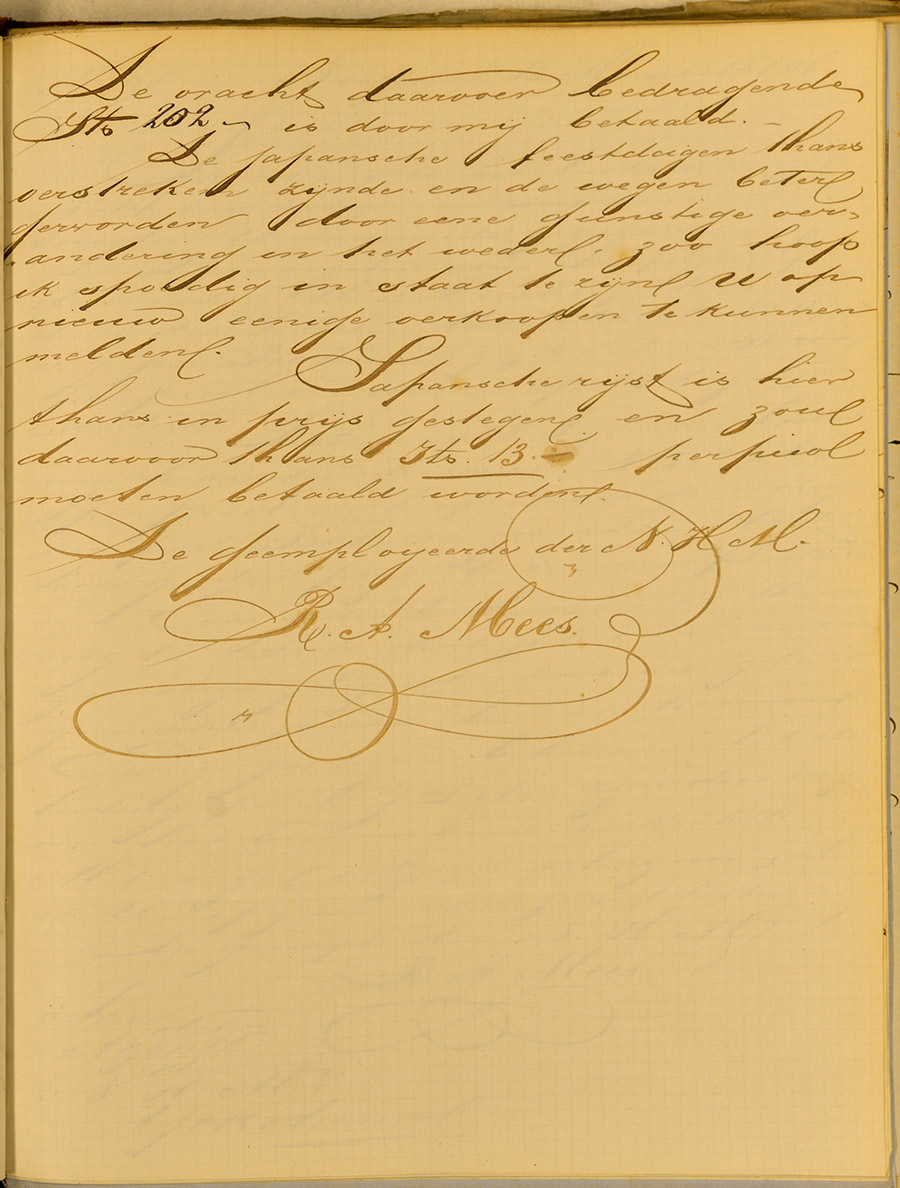 De vracht daarvoor bedragende
Itz 202 „ is door mij betaald. –
De japansche feestdagen thans
verstreken zijnde en de wegen beter
geworden door eene gunstige ver-
andering in het weder. zoo hoop
ik spoedig in staat te zijn U op
nieuw eenige verkoopen te kunnen
melden.
Japansche rijst is hier
thans in prijs gestegen en zou
daarvoor thans Itz. 13. – per picol
moeten betaald worden.
De geemployeerde der N. H M.
R. A. Mees.